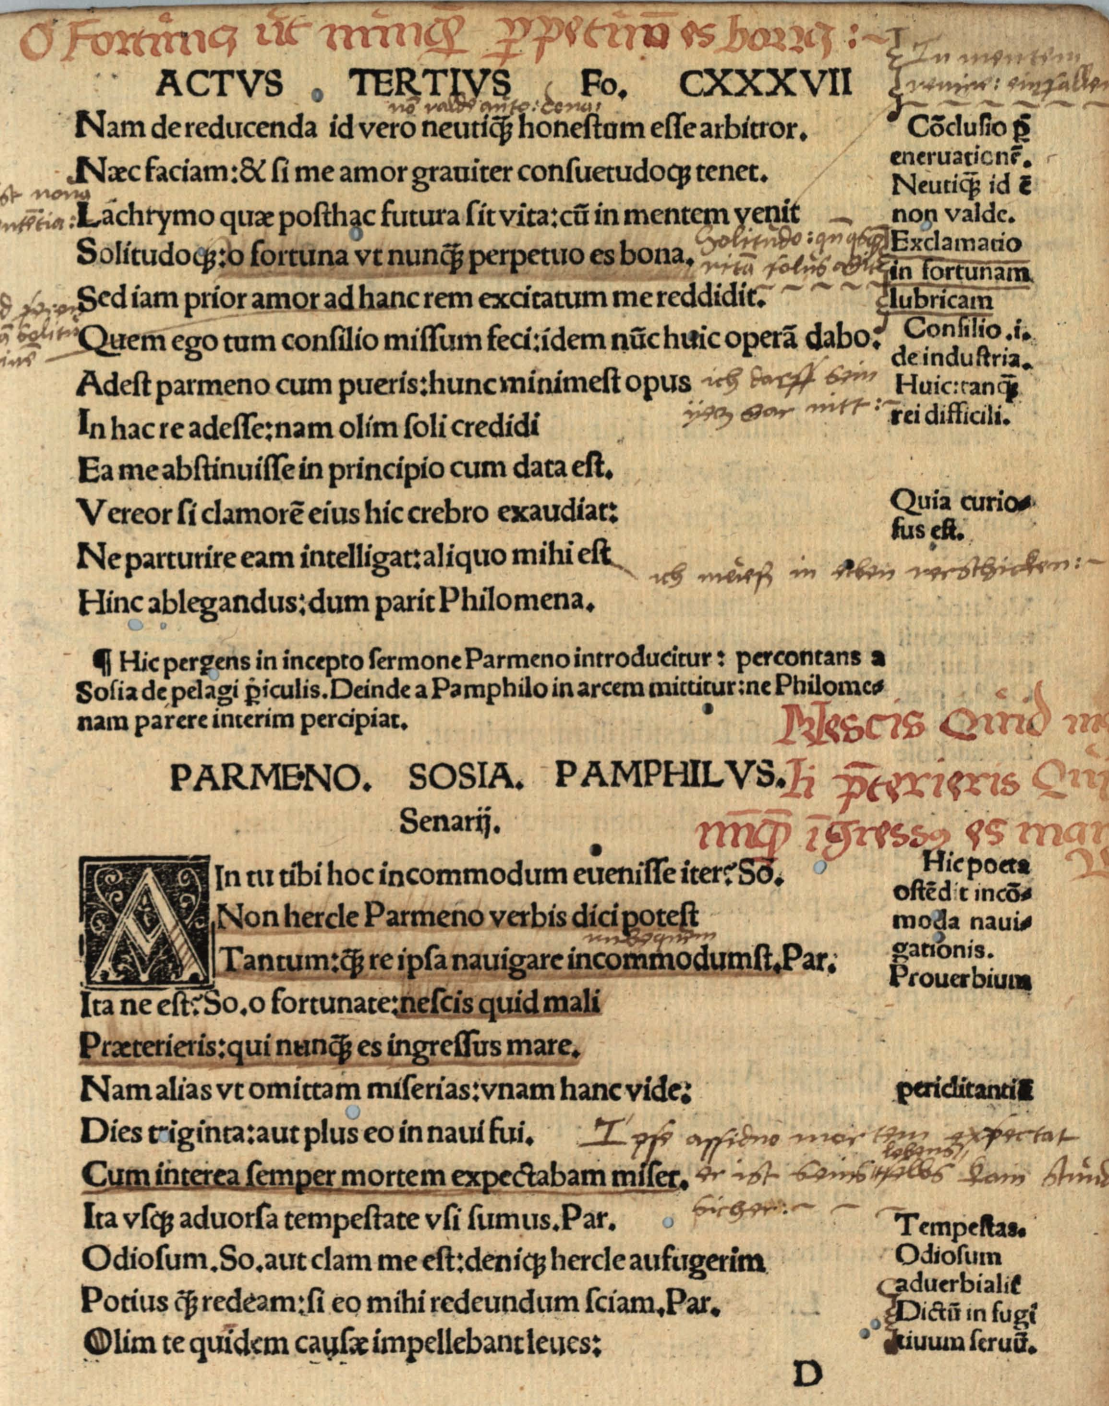 O Fortuna ut nunq̃ ꝑpetuo es bona :~
In mentem
venire: einfallen
ACTVS TERTIVS Fo. CXXXVII
Nam de reducenda id vero neutiq̃ꝫ honestum esse arbitror.
Næc faciam:& si me amor grauiter consuetudoqꝫ tenet.
Lachrymo quæ posthac futura sit vita:cũ in mentem venit
Solitudoqꝫ:o fortuna vt nunq̃ꝫ perpetuo es bona.
Sed iam prior amor ad hanc rem excitatum me reddidit.
Quem ego tum consilio missum feci:idem nũc huic operã dabo.
Adest parmeno cum pueris:hunc minimest opus
In hac re adesse:nam olim soli credidi
Ea me abstinuisse in principio cum data est.
Vereor si clamorẽ eius hic crebro exaudiat:
Ne parturire eam intelligat:aliquo mihi est
Hinc ablegandus:dum parit Philomena.
Cõclusio p̃
eneruationẽ.
Neutiq̃ꝫ id ẽ
non valde.
Exclamatio
in fortunam
lubricam
Consilio.i.
de industria.
Huic:tanq̃ꝫ
rei difficili.
Quia curio-
sus est.
ich darff sein
gar nitt:~
ich mues in eben verschicken:~
¶ Hic pergens in incepto sermone Parmeno introducitur: percontans a
Sosia de pelagi ꝑiculis.Deinde a Pamphilo in arcem mittitur:ne Philome-
nam parere interim percipiat.
Nescis Quid
p̃terieris
nunq̃ ĩgressus es mar
PARMENO. SOSIA. PAMPHILVS.
Senarij.
AIn tu tibi hoc incommodum euenisse iter?So.
Non hercle Parmeno verbis dici potest
Tantum:q̃ꝫ re ipsa nauigare incommodumst.Par.
Ita ne est?So.o fortunate:nescis quid mali
Præterieris:qui nunq̃ꝫ es ingressus mare.
Nam alias vt omittam miserias:vnam hanc vide:
Dies triginta:aut plus eo in naui fui.
Cum interea semper mortem expectabam miser.
Ita vsqꝫ aduorsa tempestate vsi sumus.Par.
Odiosum.So.aut clam me est:deniqꝫ hercle aufugerim
Potius q̃ꝫ redeam:si eo mihi redeundum sciam.Par.
Olim te quidem causæ impellebant leues:
Hic poeta
ostẽdit incõ-
moda naui-
gationis.
Prouerbium
periclitantiũ
Ipse assiduo mortem expectat
er ist seins lebens kain stund
sicher:~
Tempestas.
Odiosum
aduerbialiť
Dictũ in fugi
tiuum seruũ.
D